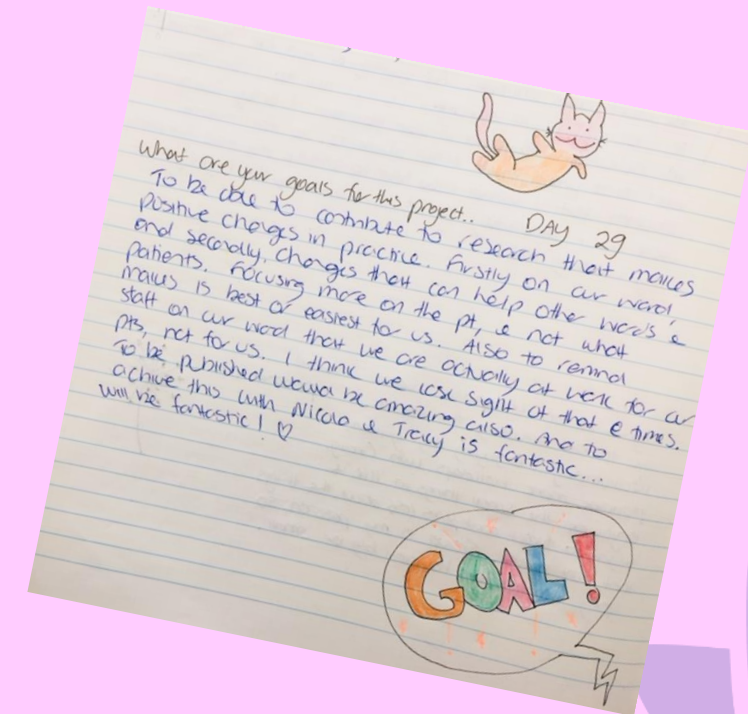 What are your goals for this project..
DAY 29
To be able to contribute to research that makes
positive changes in practice. Firstly on our ward,
and secondly, changes that can help other wards &
patients. Focusing more on the pt, & not what
makes is best or easiest for us. Also to remind
staff on our ward that we are actually at work for our
pts, not for us. I think we lose sight of that @ times.
To be published would be amazing also. And to
achive this with Nicola & Tracy is fantastic...
will be fantastic! ♡
GOAL!